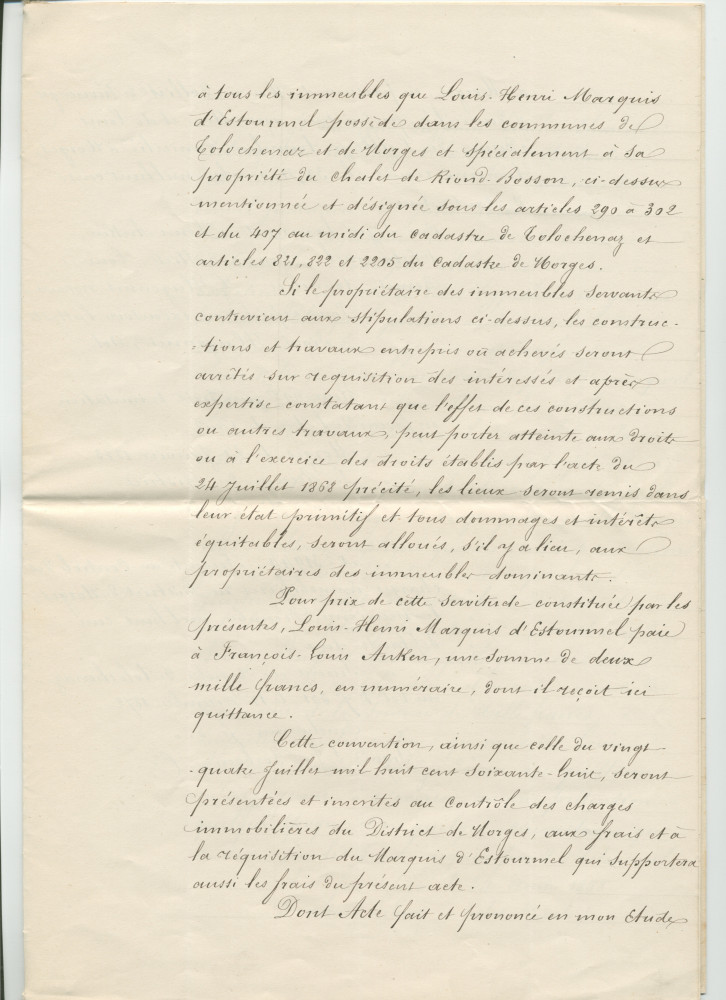 à tous les immeubles que Louis-Henri Marquis
d'Estourmel possède dans les communes de
Tolochenaz et de Morges et spécialement à sa
propriété du chalet de Riond-Bosson, ci-dessus
mentionnée et désignée sous les articles 290 à 302
et du 407 au midi du cadastre de Tolochenaz et
articles 821, 822 et 2205 du cadastre de Morges.
Si le propriétaire des immeubles servants
contrevient aux stipulations ci-dessus, les construc-
-tions et travaux entrepris ou achevés seront
arrêtés sur requisition des intéressés et après
expertise constatant que l'effet de ces constructions
ou autres travaux, peut porter atteinte aux droits
ou à l'exercice des droits établis par l'acte du
24 Juillet 1868 précité, les lieux seront remis dans
leur état primitif et tous dommages et intérêts
équitables, seront alloués, s'il y a lieu, aux
propriétaires des immeubles dominants.
Pour prix de cette servitude constituée par les
présentes, Louis-Henri Marquis d'Estourmel paie
à François-Louis Anken, une somme de deux
mille francs, en numéraire, dont il reçoit ici
quittance.
Cette convention, ainsi que celle du vingt
-quatre Juillet mil huit cent soixante-huit, seront
présentées et inscrites au contrôle des charges
immobilières du District de Morges, aux frais et à
la réquisition du Marquis d'Estourmel qui supportera
aussi les frais du présent acte.
Dont Acte fait et prononcé en mon Etude